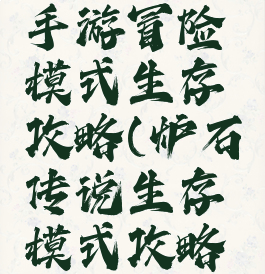 手游冒险
模式生存
攻略(炉石
传说生存
模式攻略